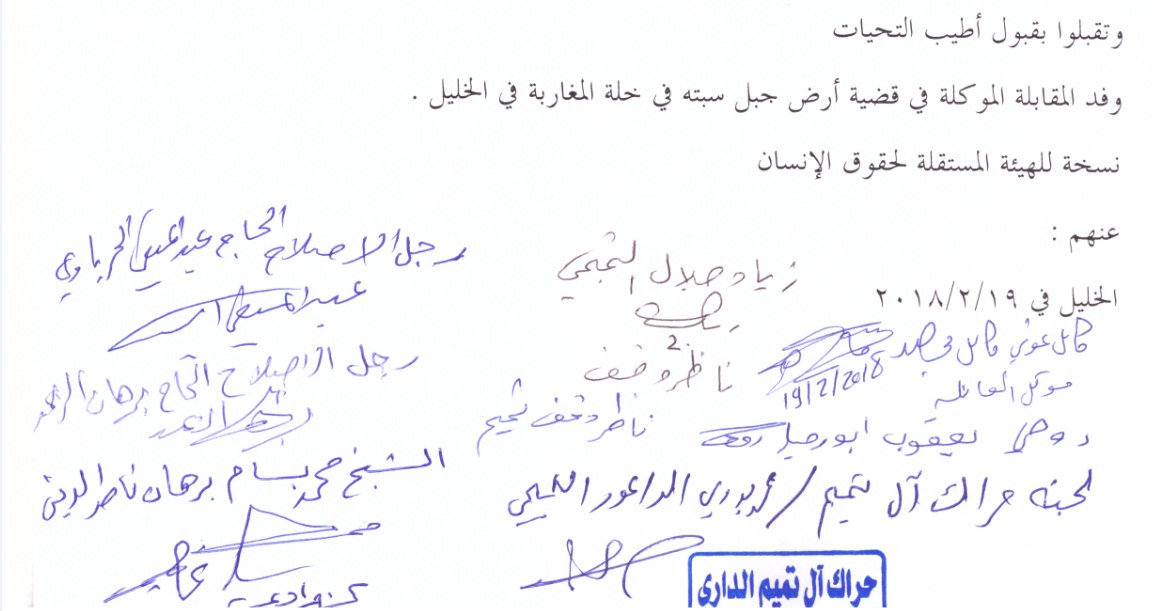 وتقبلوا بقبول أطيب التحيات
وفد المقابلة الموكلة في قضية أرض جبل سبته في خلة المغاربة في الخليل .
نسخة للهيئة المستقلة لحقوق الإنسان
عنهم :
الخليل في ٢٠١٨/٢/١٩
رجل الاصلاح الحاج
زياد جلال التميمي
كامل عوني كامل
19/2/2018
موكل العائلة
ناظر وقف
2
رجل الاصلاح الحاج برهان
ناظر وقف تميم
يعقوب ابو
الشيخ محمد بسام برهان ناصر الدين
لجنة حراك آل تميم / التميمي
حراك آل تميم الدارى